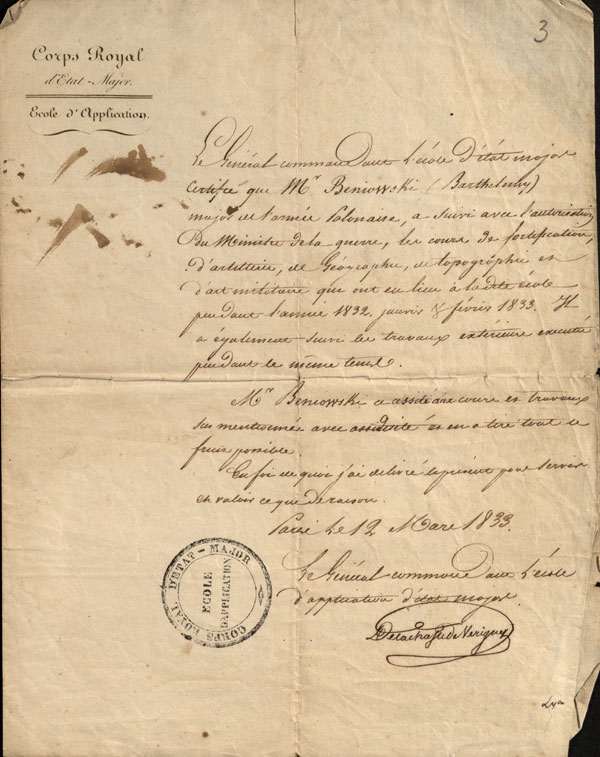 3
Corps Royal
d'Etat-Major.
Ecole d'Application.
Le Général commandant l'école d'état major
certifie que Mr Beniowski (Barthelemy)
major de l'armée Polonaise, a suivi avec l'autorisation
du Ministre de la guerre, les cours de fortification,
d'artillerie, de Géographie, de topographie et
d'art militaire qui ont eu lieu à la dite école
pendant l'année 1832, janvier & février 1833. Il
a également suivi les travaux extérieurs exécutés
pendant le même tems.
Mr Beniowski a assisté aux cours et travaux
sus mentionnés avec assiduité et en a tiré tout le
fruit possible.
En foi de quoi j'ai délivré le présent pour servir
et valoir ce que de raison.
Paris Le 12 Mars 1833.
Le Général commandant l'école
d'application d'état major.
CORPS ROYAL D'ETAT-MAJOR
ECOLE
D'APPLICATION